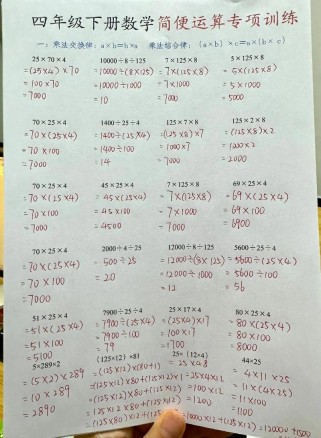 四年级下册数学简便运算专项训练
一：乘法交换律：a×b=b×a 乘法结合律：(a×b)×c=a×(b×c)
25×70×4 10000÷8÷125 7×125×8 5×125×8
=(25×4)×70 =10000÷(8×125) =7×(125×8) =5×(125×8)
=100×70 =10000÷1000 =7×1000 =5×1000
=7000 =10 =7000 =5000
70×25×4 1400÷25÷4 125×7×8 125×2×8
=70×(25×4) =1400÷(25×4) =(125×8)×7 =(125×8)×2
=70×100 =1400÷100 =1000×7 =1000×2
=7000 =14 =7000 =2000
70×25×4 45×25×4 7×125×8 69×25×4
=70×(25×4) =45×(25×4) =7×(125×8) =69×(25×4)
=70×100 =45×100 =7×1000 =69×100
=7000 =4500 =7000 =6900
70×25×4 2000÷4÷25 12000÷8÷125 5600÷25÷4
=70×(25×4) =500÷25 =12000÷(8×125) =5600÷(25×4)
=70×100 =20 =12000÷1000 =5600÷100
=7000 =12 =56
51×25×4 7900÷25÷4 25×17×4 80×25×4
=51×(25×4) =7900÷(25×4) =(25×4)×17 =80×(25×4)
=51×100 =7900÷100 =100×17 =80×100
=5100 =79 =1700 =8000
5×289×2 (125×12)×81 25×(12×4) 44×25
=(5×2)×289 =(125×12)×(80+1) =25×48 =4×11×25
=10×289 =(125×12)×80+(125×12)×1 =25×4×12 =11×(4×25)
=2890 =125×12×80+(125×12) =100×12 =11×100
=(125×80)×12+(125×12) =1200 =1100
=1000×12+(125×12)=12000+1500